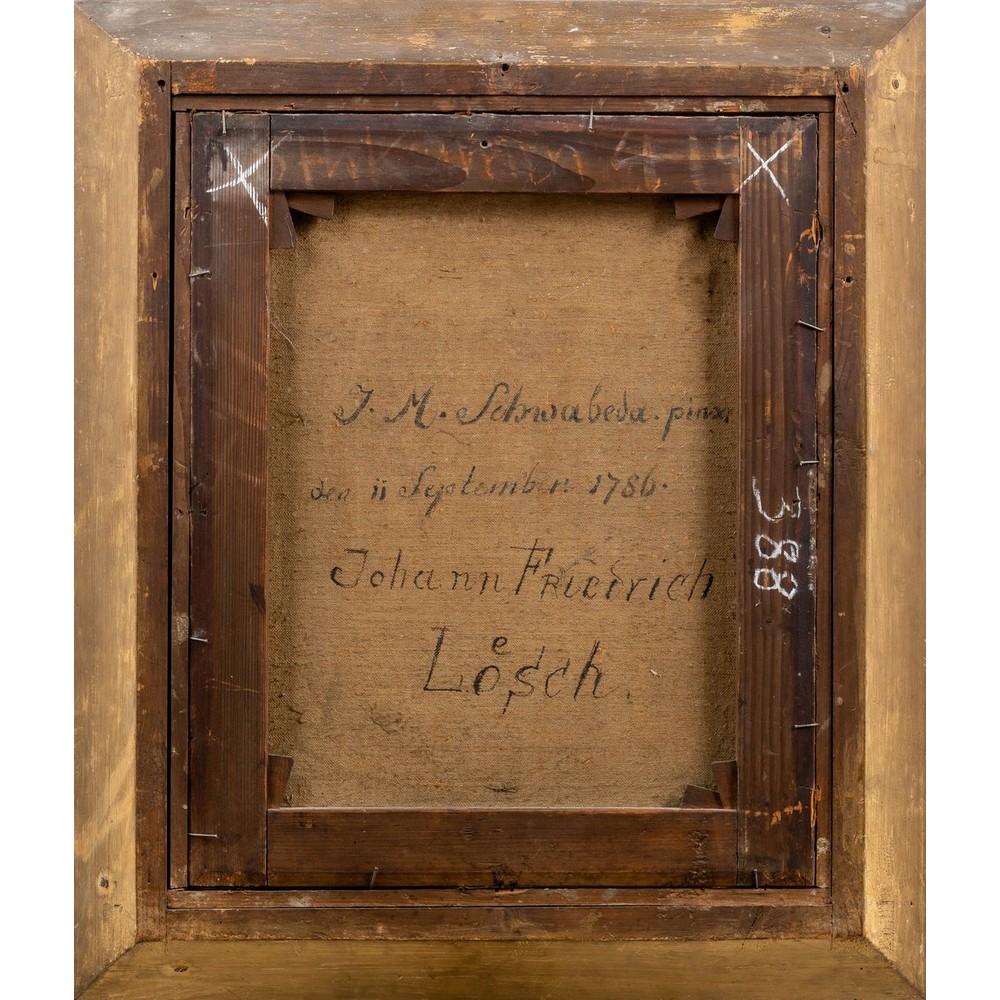 J. M. Schwabeda. pinx
den 11 September 1786.
Johann Friedrich
Loͤsch.
388